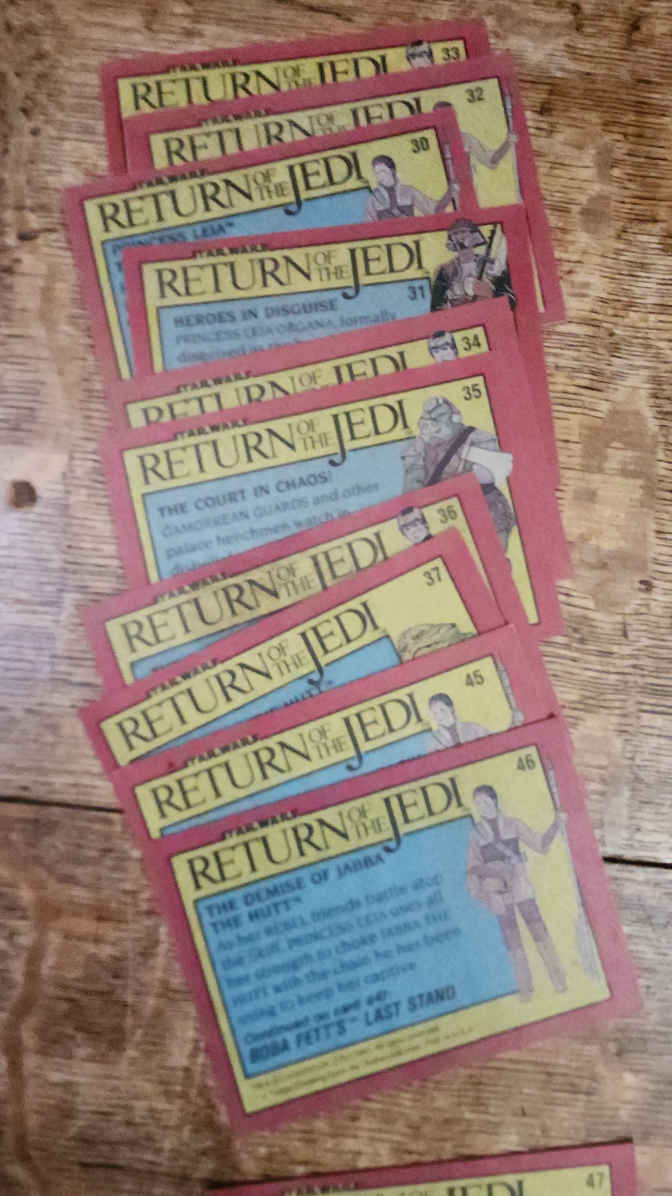 STAR WARS
RETURN OF THE JEDI
33
STAR WARS
RETURN OF THE JEDI
32
STAR WARS
RETURN OF THE JEDI
30
PRINCESS LEIA™
STAR WARS
RETURN OF THE JEDI
31
HEROES IN DISGUISE
PRINCESS LEIA ORGANA, formally
disguised as
STAR WARS
RETURN OF THE JEDI
34
STAR WARS
RETURN OF THE JEDI
35
THE COURT IN CHAOS!
GAMORREAN GUARDS and other
palace henchmen watch in
STAR WARS
RETURN OF THE JEDI
36
STAR WARS
RETURN OF THE JEDI
37
HUTT™
STAR WARS
RETURN OF THE JEDI
45
STAR WARS
RETURN OF THE JEDI
46
THE DEMISE OF JABBA
THE HUTT™
As her REBEL friends battle atop
the skiff, PRINCESS LEIA uses all
her strength to choke JABBA THE
HUTT with the chain he has been
using to keep her captive.
Continued on card #47:
BOBA FETT'S™ LAST STAND
STAR WARS
RETURN OF THE JEDI
47